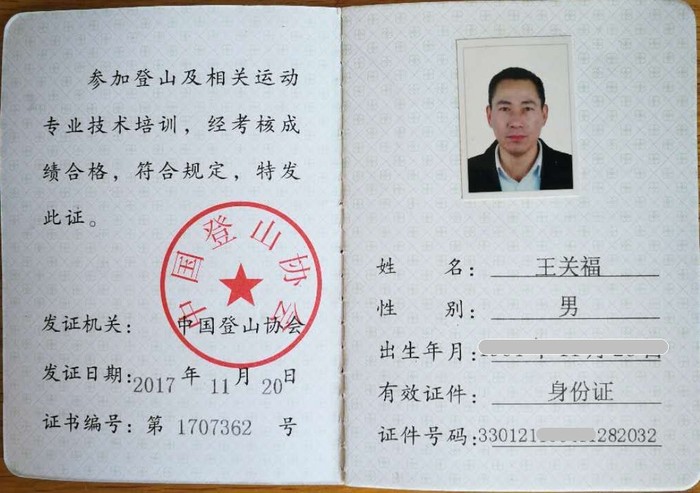 参加登山及相关运动
专业技术培训，经考核成
绩合格，符合规定，特发
此证。
中国登山协会
发证机关：中国登山协会
发证日期：2017 年 11 月 20 日
证书编号：第 1707362 号
姓 名：王关福
性 别：男
出生年月：
有效证件：身份证
证件号码：330121 282032